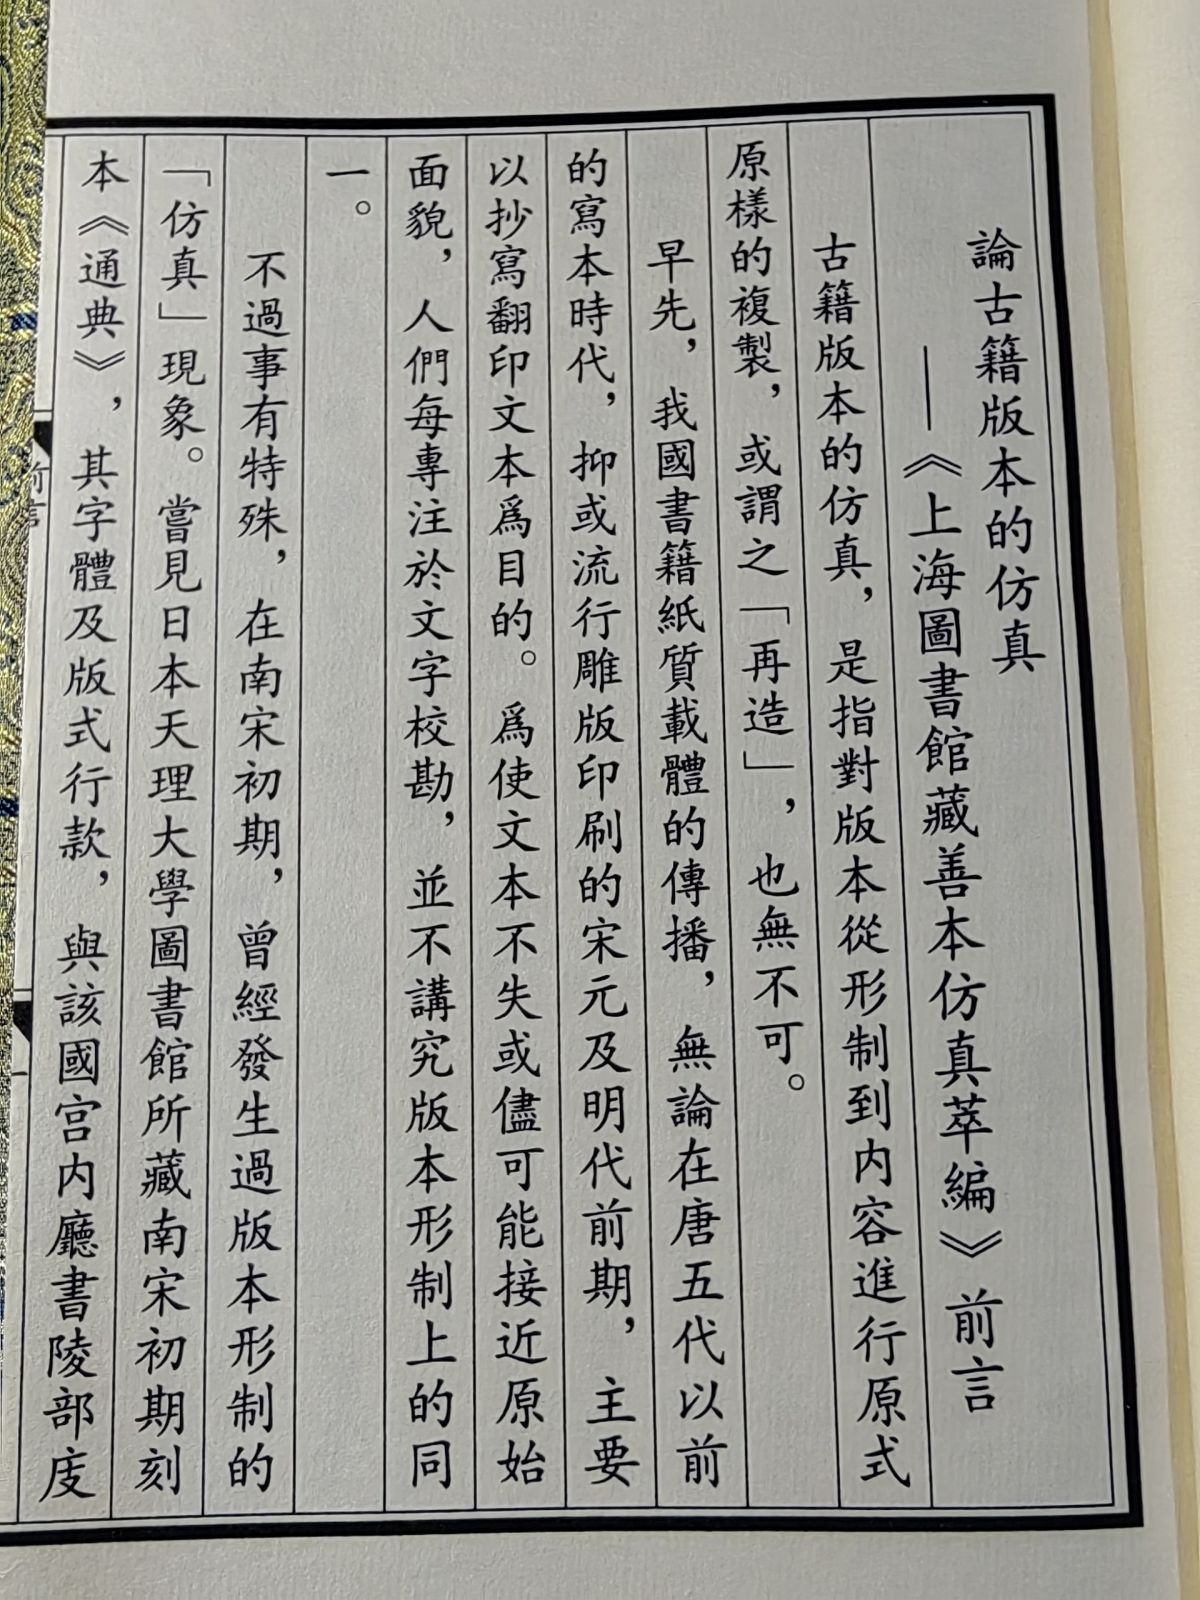 論古籍版本的仿真
——《上海圖書館藏善本仿真萃編》前言
古籍版本的仿真，是指對版本從形制到内容進行原式
原樣的複製，或謂之「再造」，也無不可。
早先，我國書籍紙質載體的傳播，無論在唐五代以前
的寫本時代，抑或流行雕版印刷的宋元及明代前期，主要
以抄寫翻印文本爲目的。爲使文本不失或儘可能接近原始
面貌，人們每專注於文字校勘，並不講究版本形制上的同
一。
不過事有特殊，在南宋初期，曾經發生過版本形制的
「仿真」現象。嘗見日本天理大學圖書館所藏南宋初期刻
本《通典》，其字體及版式行款，與該國宫内廳書陵部庋
前言
一